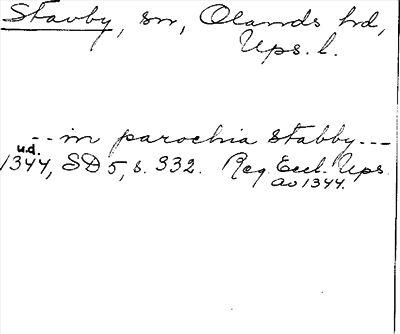 Stavby, sn, Olands hd,
Ups. l.
-- in parochia Stabby ---
u.d.
1344, SD 5, s. 332. Reg. Eccl. Ups.
av 1344.